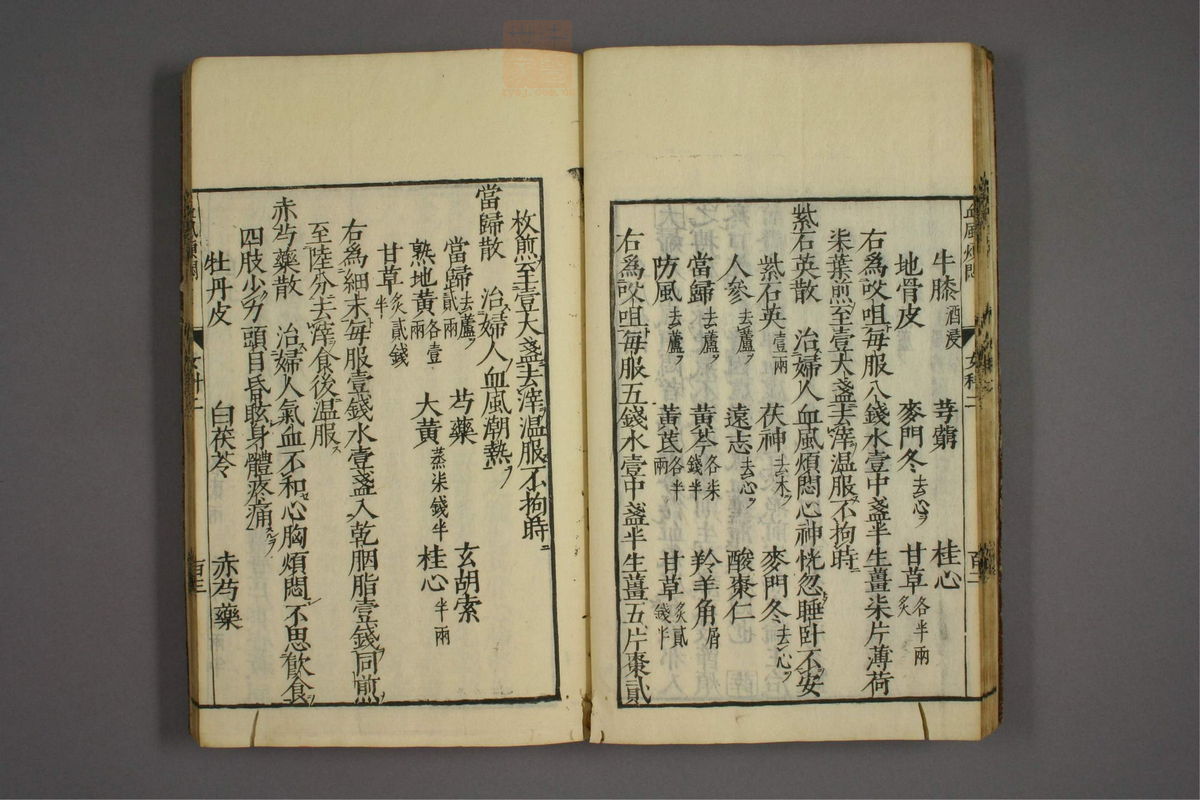 牛膝酒浸 莎草 桂心
地骨皮 麥門冬去心ヲ 甘草炙各半兩
右為㕮咀毎服八錢水壹中盞半生薑柒片薄荷
柒葉煎至壹大盞去滓温服不拘時ニ
紫石英散 治婦人血風煩悶心神恍忽睡卧不安
紫石英壹兩 茯神去木ヲ 麥門冬去心ヲ
人參去蘆ヲ 遠志去心ヲ 酸棗仁
當歸去蘆ヲ 黃芩各柒錢半 羚羊角屑
防風去蘆ヲ 黃芪各半兩 甘草炙貳錢半
右為㕮咀毎服五錢水壹中盞半生薑五片棗貳
血風煩悶 女科二 百二
枚煎至壹大盞去滓温服不拘時ニ
當歸散 治婦人血風潮熱ヲ
當歸去蘆ヲ貳兩 芍藥 玄胡索
熟地黃各壹兩 大黃蒸柒錢半 桂心半兩
甘草炙貳錢半
右為細末毎服壹錢水壹盞入乾胭脂壹錢同煎
至陸分去滓食後温服ス
赤芍藥散 治婦人氣血不和心胸煩悶不思飲食
四肢少力頭目昏眩身體疼痛スルヲ
牡丹皮 白茯苓 赤芍藥